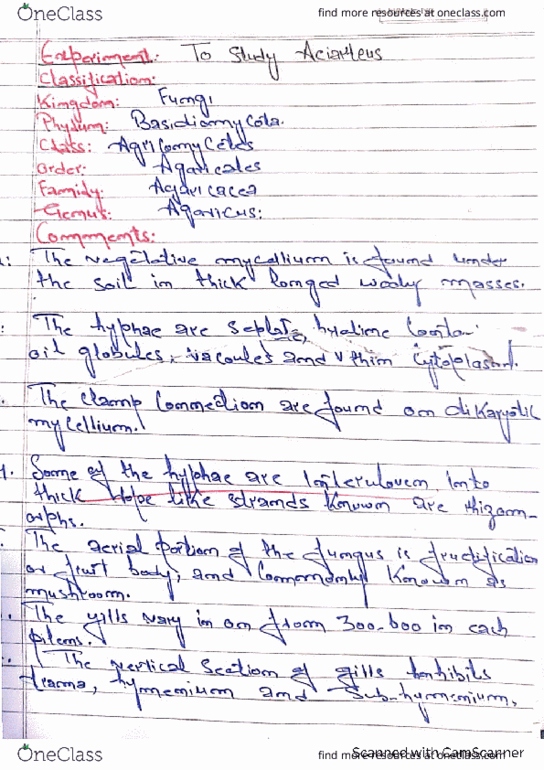 OneClass
find more resources at oneclass.com
Experiment: To Study
Classification:
Kingdom: Fungi
Phylum: Basidiomycota.
Class: Agricomycetes
Order: Agaricales
Family: Agaricacea
Genus: Agaricus:
Comments:
The vegetative mycellium is found under
the soil in thick longed wooly masses.
The hyphae are septate, hyaline
oil globules, vacoules and thin Cytoplasm.
The clamp Connection are found on dikaryotic
mycellium.
Some of the hyphae are interwoven into
thick Hope like strands known are rhizom-
orphs.
The aerial portion of the fungus is fructification
or fruit body, and Commonly Known as
mushroom.
The gills vary in on from 300-600 in each
The vertical Section of gills Exhibits
trama, hymenium and Sub-hymenium,
OneClass
find more resources at oneclass.com
Scanned with CamScanner